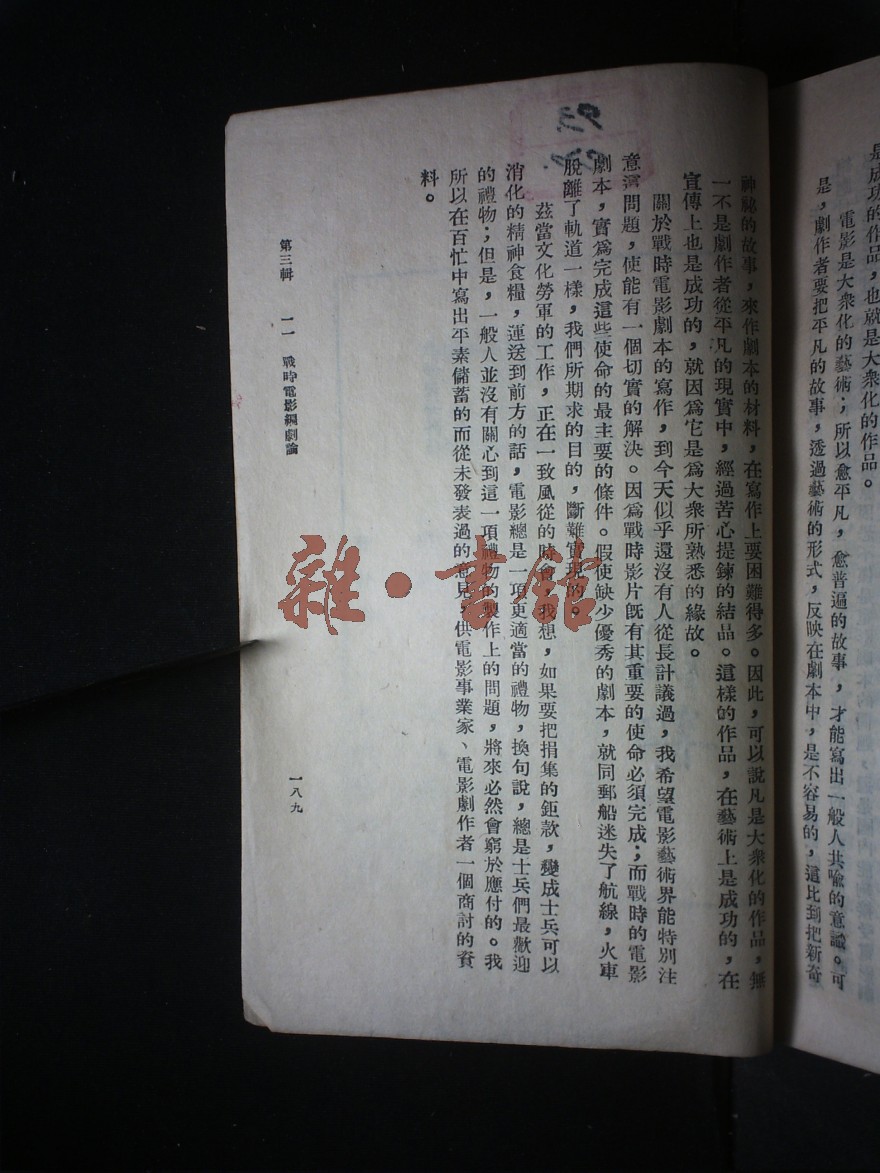 是成功的作品，也就是大衆化的作品。
電影是大衆化的藝術；所以愈平凡，愈普遍的故事，才能寫出一般人共喻的意識。可
是，劇作者要把平凡的故事，透過藝術的形式，反映在劇本中，是不容易的，這比到把新奇
神祕的故事，來作劇本的材料，在寫作上要困難得多。因此，可以說凡是大衆化的作品，無
一不是劇作者從平凡的現實中，經過苦心提鍊的結晶。這樣的作品，在藝術上是成功的，在
宣傳上也是成功的，就因爲它是爲大衆所熟悉的緣故。
關於戰時電影劇本的寫作，到今天似乎還沒有人從長計議過，我希望電影藝術界能特別注
意這問題，使能有一個切實的解決。因爲戰時影片旣有其重要的使命必須完成；而戰時的電影
劇本，實爲完成這些使命的最主要的條件。假使缺少優秀的劇本，就同郵船迷失了航線，火車
脫離了軌道一樣，我們所期求的目的，斷難實現的。
茲當文化勞軍的工作，正在一致風從的時會，我想，如果要把捐集的鉅款，變成士兵可以
消化的精神食糧，運送到前方的話，電影總是一項更適當的禮物，換句說，總是士兵們最歡迎
的禮物；但是，一般人並沒有關心到這一項禮物的製作上的問題，將來必然會窮於應付的。我
所以在百忙中寫出平素儲蓄的而從未發表過的意見，供電影事業家、電影劇作者一個商討的資
料。
第三輯　一一　戰時電影編劇論
一八九
雜·書館